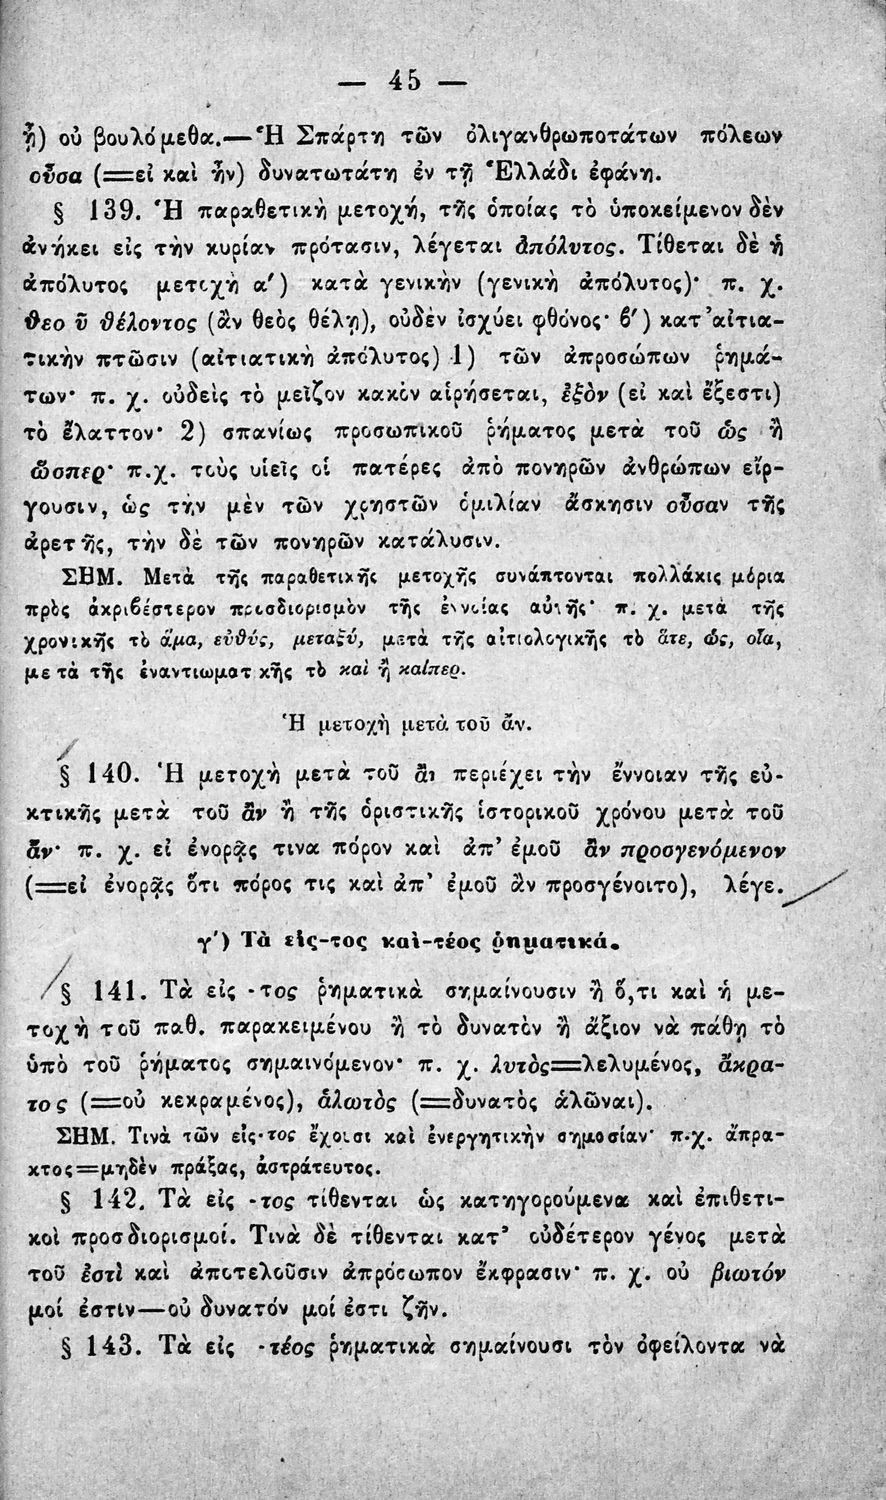 — 45 —
ᾖ) οὐ βουλόμεθα.—Ἡ Σπάρτη τῶν ὀλιγανθρωποτάτων πόλεων
οὖσα (=εἰ καὶ ἦν) δυνατωτάτη ἐν τῇ Ἑλλάδι ἐφάνη.
§ 139. Ἡ παραθετικὴ μετοχή, τῆς ὁποίας τὸ ὑποκείμενον δὲν
ἀνήκει εἰς τὴν κυρίαν πρότασιν, λέγεται ἀπόλυτος. Τίθεται δὲ ἡ
ἀπόλυτος μετοχὴ α′) κατὰ γενικὴν (γενικὴ ἀπόλυτος)· π. χ.
θεοῦ θέλοντος (ἂν θεὸς θέλῃ), οὐδὲν ἰσχύει φθόνος· β′) κατ’ αἰτια-
τικὴν πτῶσιν (αἰτιατικὴ ἀπόλυτος) 1) τῶν ἀπροσώπων ῥημά-
των· π. χ. οὐδεὶς τὸ μεῖζον κακὸν αἱρήσεται, ἐξὸν (εἰ καὶ ἔξεστι)
τὸ ἔλαττον· 2) σπανίως προσωπικοῦ ῥήματος μετὰ τοῦ ὡς ἢ
ὥσπερ· π.χ. τοὺς υἱεῖς οἱ πατέρες ἀπὸ πονηρῶν ἀνθρώπων εἴρ-
γουσιν, ὡς τὴν μὲν τῶν χρηστῶν ὁμιλίαν ἄσκησιν οὖσαν τῆς
ἀρετῆς, τὴν δὲ τῶν πονηρῶν κατάλυσιν.
ΣΗΜ. Μετὰ τῆς παραθετικῆς μετοχῆς συνάπτονται πολλάκις μόρια
πρὸς ἀκριβέστερον προσδιορισμὸν τῆς ἐννοίας αὐτῆς· π. χ. μετὰ τῆς
χρονικῆς τὸ ἅμα, εὐθύς, μεταξύ, μετὰ τῆς αἰτιολογικῆς τὸ ἅτε, ὡς, οἷα,
μετὰ τῆς ἐναντιωματικῆς τὸ καὶ ἢ καίπερ.
Ἡ μετοχὴ μετὰ τοῦ ἄν.
§ 140. Ἡ μετοχὴ μετὰ τοῦ ἂν περιέχει τὴν ἔννοιαν τῆς εὐ-
κτικῆς μετὰ τοῦ ἂν ἢ τῆς ὁριστικῆς ἱστορικοῦ χρόνου μετὰ τοῦ
ἄν· π. χ. εἰ ἐνορᾷς τινα πόρον καὶ ἀπ’ ἐμοῦ ἂν προσγενόμενον
(=εἰ ἐνορᾷς ὅτι πόρος τις καὶ ἀπ’ ἐμοῦ ἂν προσγένοιτο), λέγε.
γ′) Τὰ εἰς-τος καὶ-τέος ῥηματικά.
§ 141. Τὰ εἰς -τος ῥηματικὰ σημαίνουσιν ἢ ὅ,τι καὶ ἡ με-
τοχὴ τοῦ παθ. παρακειμένου ἢ τὸ δυνατὸν ἢ ἄξιον νὰ πάθῃ τὸ
ὑπὸ τοῦ ῥήματος σημαινόμενον· π. χ. λυτὸς=λελυμένος, ἄκρα-
τος (=οὐ κεκραμένος), ἁλωτὸς (=δυνατὸς ἁλῶναι).
ΣΗΜ. Τινὰ τῶν εἰς-τος ἔχουσι καὶ ἐνεργητικὴν σημασίαν· π.χ. ἄπρα-
κτος=μηδὲν πράξας, ἀστράτευτος.
§ 142. Τὰ εἰς -τος τίθενται ὡς κατηγορούμενα καὶ ἐπιθετι-
κοὶ προσδιορισμοί. Τινὰ δὲ τίθενται κατ’ οὐδέτερον γένος μετὰ
τοῦ ἐστὶ καὶ ἀποτελοῦσιν ἀπρόσωπον ἔκφρασιν· π. χ. οὐ βιωτόν
μοί ἐστιν—οὐ δυνατόν μοί ἐστι ζῆν.
§ 143. Τὰ εἰς -τέος ῥηματικὰ σημαίνουσι τὸν ὀφείλοντα νὰ